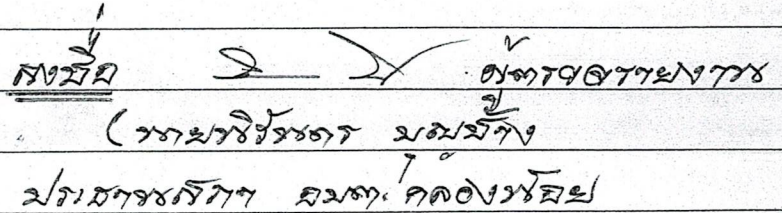 ลงชื่อ ผู้ตรวจรายงาน
(นายนิรันดร บุญช้าง
ประธานสภา อบต. คลองน้อย